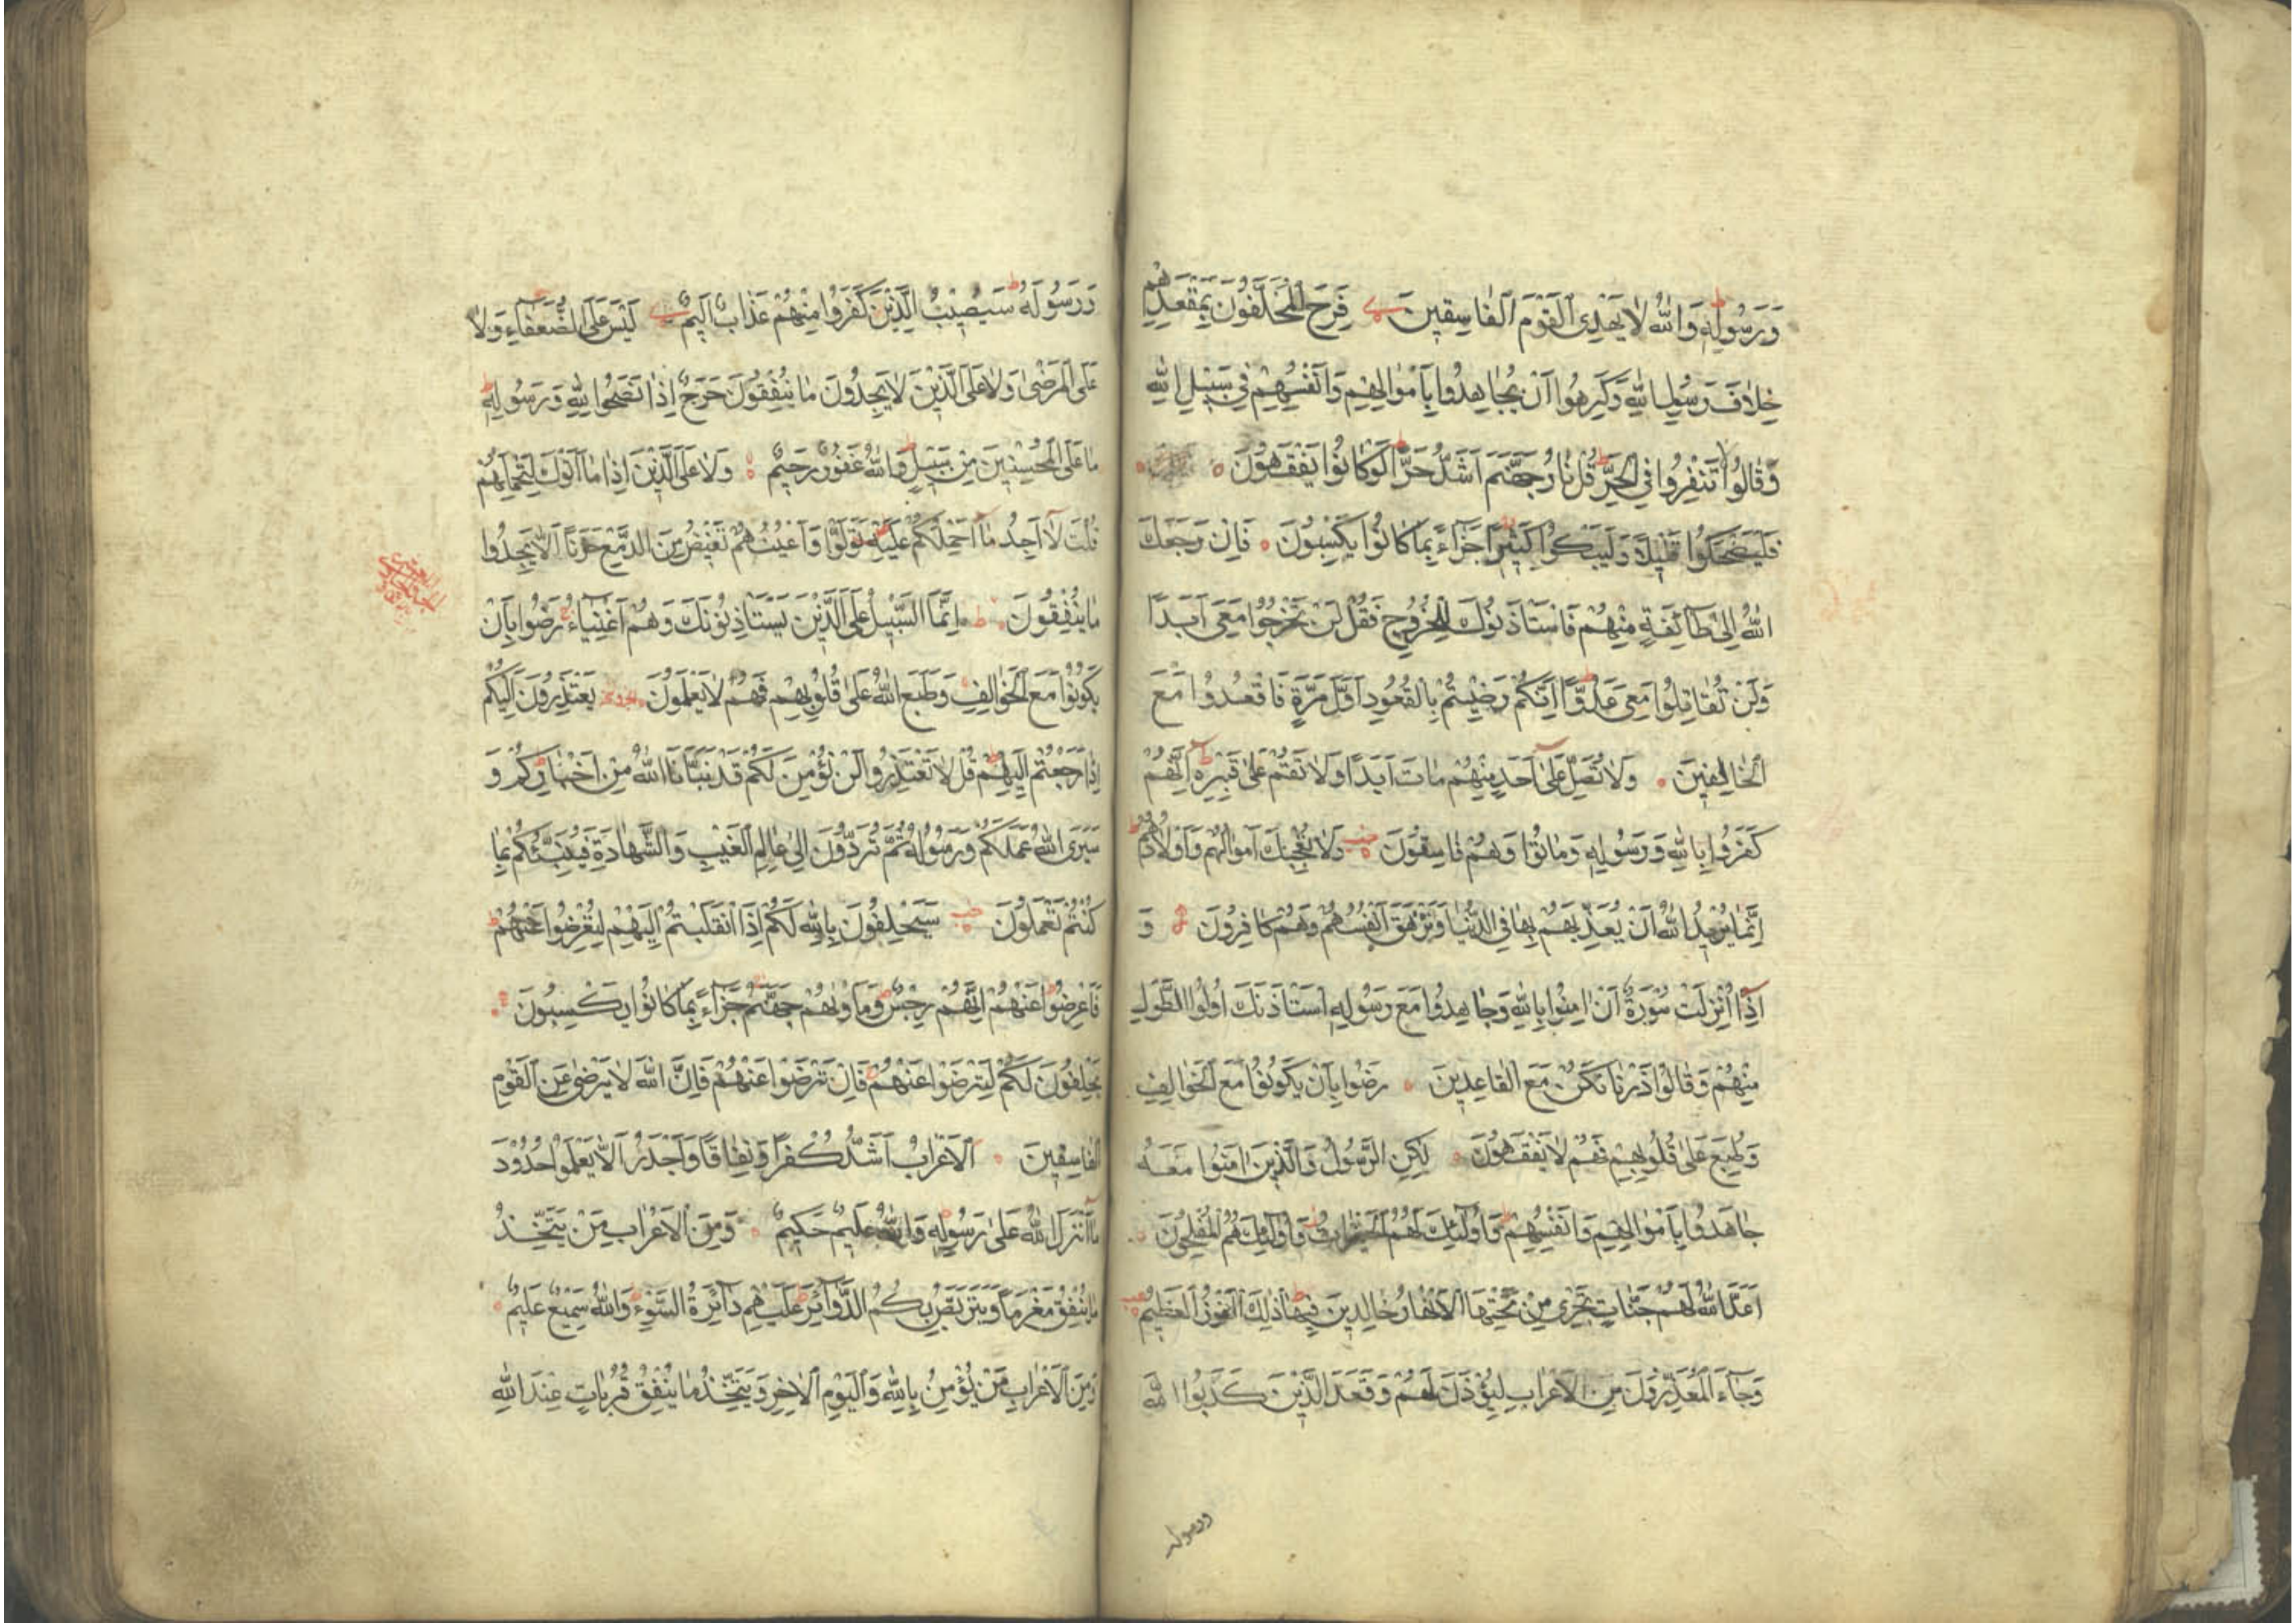 وَرَسُولِهِ وَاللّٰهُ لَا يَهْدِى الْقَوْمَ الْفَاسِقِينَ فَرِحَ الْمُخَلَّفُونَ بِمَقْعَدِهِمْ
خِلَافَ رَسُولِ اللّٰهِ وَكَرِهُوا أَنْ يُجَاهِدُوا بِأَمْوَالِهِمْ وَأَنْفُسِهِمْ فِى سَبِيلِ اللّٰهِ
وَقَالُوا لَا تَنْفِرُوا فِى الْحَرِّ قُلْ نَارُ جَهَنَّمَ أَشَدُّ حَرًّا لَوْ كَانُوا يَفْقَهُونَ
فَلْيَضْحَكُوا قَلِيلًا وَلْيَبْكُوا كَثِيرًا جَزَاءً بِمَا كَانُوا يَكْسِبُونَ فَإِنْ رَجَعَكَ
اللّٰهُ إِلَى طَائِفَةٍ مِنْهُمْ فَاسْتَأْذَنُوكَ لِلْخُرُوجِ فَقُلْ لَنْ تَخْرُجُوا مَعِىَ أَبَدًا
وَلَنْ تُقَاتِلُوا مَعِىَ عَدُوًّا إِنَّكُمْ رَضِيتُمْ بِالْقُعُودِ أَوَّلَ مَرَّةٍ فَاقْعُدُوا مَعَ
الْخَالِفِينَ وَلَا تُصَلِّ عَلَى أَحَدٍ مِنْهُمْ مَاتَ أَبَدًا وَلَا تَقُمْ عَلَى قَبْرِهِ إِنَّهُمْ
كَفَرُوا بِاللّٰهِ وَرَسُولِهِ وَمَاتُوا وَهُمْ فَاسِقُونَ وَلَا تُعْجِبْكَ أَمْوَالُهُمْ وَأَوْلَادُهُمْ
إِنَّمَا يُرِيدُ اللّٰهُ أَنْ يُعَذِّبَهُمْ بِهَا فِى الدُّنْيَا وَتَزْهَقَ أَنْفُسُهُمْ وَهُمْ كَافِرُونَ وَ
إِذَا أُنْزِلَتْ سُورَةٌ أَنْ اٰمِنُوا بِاللّٰهِ وَجَاهِدُوا مَعَ رَسُولِهِ اسْتَأْذَنَكَ أُولُوا الطَّوْلِ
مِنْهُمْ وَقَالُوا ذَرْنَا نَكُنْ مَعَ الْقَاعِدِينَ رَضُوا بِأَنْ يَكُونُوا مَعَ الْخَوَالِفِ
وَطُبِعَ عَلَى قُلُوبِهِمْ فَهُمْ لَا يَفْقَهُونَ لٰكِنِ الرَّسُولُ وَالَّذِينَ اٰمَنُوا مَعَهُ
جَاهَدُوا بِأَمْوَالِهِمْ وَأَنْفُسِهِمْ وَأُولٰئِكَ لَهُمُ الْخَيْرَاتُ وَأُولٰئِكَ هُمُ الْمُفْلِحُونَ
أَعَدَّ اللّٰهُ لَهُمْ جَنَّاتٍ تَجْرِى مِنْ تَحْتِهَا الْأَنْهَارُ خَالِدِينَ فِيهَا ذٰلِكَ الْفَوْزُ الْعَظِيمُ
وَجَاءَ الْمُعَذِّرُونَ مِنَ الْأَعْرَابِ لِيُؤْذَنَ لَهُمْ وَقَعَدَ الَّذِينَ كَذَبُوا اللّٰهَ
ورسوله
وَرَسُولَهُ سَيُصِيبُ الَّذِينَ كَفَرُوا مِنْهُمْ عَذَابٌ أَلِيمٌ لَيْسَ عَلَى الضُّعَفَاءِ وَلَا
عَلَى الْمَرْضَى وَلَا عَلَى الَّذِينَ لَا يَجِدُونَ مَا يُنْفِقُونَ حَرَجٌ إِذَا نَصَحُوا لِلّٰهِ وَرَسُولِهِ
مَا عَلَى الْمُحْسِنِينَ مِنْ سَبِيلٍ وَاللّٰهُ غَفُورٌ رَحِيمٌ وَلَا عَلَى الَّذِينَ إِذَا مَا أَتَوْكَ لِتَحْمِلَهُمْ
قُلْتَ لَا أَجِدُ مَا أَحْمِلُكُمْ عَلَيْهِ تَوَلَّوْا وَأَعْيُنُهُمْ تَفِيضُ مِنَ الدَّمْعِ حَزَنًا أَلَّا يَجِدُوا
مَا يُنْفِقُونَ إِنَّمَا السَّبِيلُ عَلَى الَّذِينَ يَسْتَأْذِنُونَكَ وَهُمْ أَغْنِيَاءُ رَضُوا بِأَنْ
يَكُونُوا مَعَ الْخَوَالِفِ وَطَبَعَ اللّٰهُ عَلَى قُلُوبِهِمْ فَهُمْ لَا يَعْلَمُونَ يَعْتَذِرُونَ إِلَيْكُمْ
إِذَا رَجَعْتُمْ إِلَيْهِمْ قُلْ لَا تَعْتَذِرُوا لَنْ نُؤْمِنَ لَكُمْ قَدْ نَبَّأَنَا اللّٰهُ مِنْ أَخْبَارِكُمْ وَ
سَيَرَى اللّٰهُ عَمَلَكُمْ وَرَسُولُهُ ثُمَّ تُرَدُّونَ إِلَى عَالِمِ الْغَيْبِ وَالشَّهَادَةِ فَيُنَبِّئُكُمْ بِمَا
كُنْتُمْ تَعْمَلُونَ سَيَحْلِفُونَ بِاللّٰهِ لَكُمْ إِذَا انْقَلَبْتُمْ إِلَيْهِمْ لِتُعْرِضُوا عَنْهُمْ
فَأَعْرِضُوا عَنْهُمْ إِنَّهُمْ رِجْسٌ وَمَأْوٰيهُمْ جَهَنَّمُ جَزَاءً بِمَا كَانُوا يَكْسِبُونَ
يَحْلِفُونَ لَكُمْ لِتَرْضَوْا عَنْهُمْ فَإِنْ تَرْضَوْا عَنْهُمْ فَإِنَّ اللّٰهَ لَا يَرْضَى عَنِ الْقَوْمِ
الْفَاسِقِينَ الْأَعْرَابُ أَشَدُّ كُفْرًا وَنِفَاقًا وَأَجْدَرُ أَلَّا يَعْلَمُوا حُدُودَ
مَا أَنْزَلَ اللّٰهُ عَلَى رَسُولِهِ وَاللّٰهُ عَلِيمٌ حَكِيمٌ وَمِنَ الْأَعْرَابِ مَنْ يَتَّخِذُ
مَا يُنْفِقُ مَغْرَمًا وَيَتَرَبَّصُ بِكُمُ الدَّوَائِرَ عَلَيْهِمْ دَائِرَةُ السَّوْءِ وَاللّٰهُ سَمِيعٌ عَلِيمٌ
وَمِنَ الْأَعْرَابِ مَنْ يُؤْمِنُ بِاللّٰهِ وَالْيَوْمِ الْاٰخِرِ وَيَتَّخِذُ مَا يُنْفِقُ قُرُبَاتٍ عِنْدَ اللّٰهِ